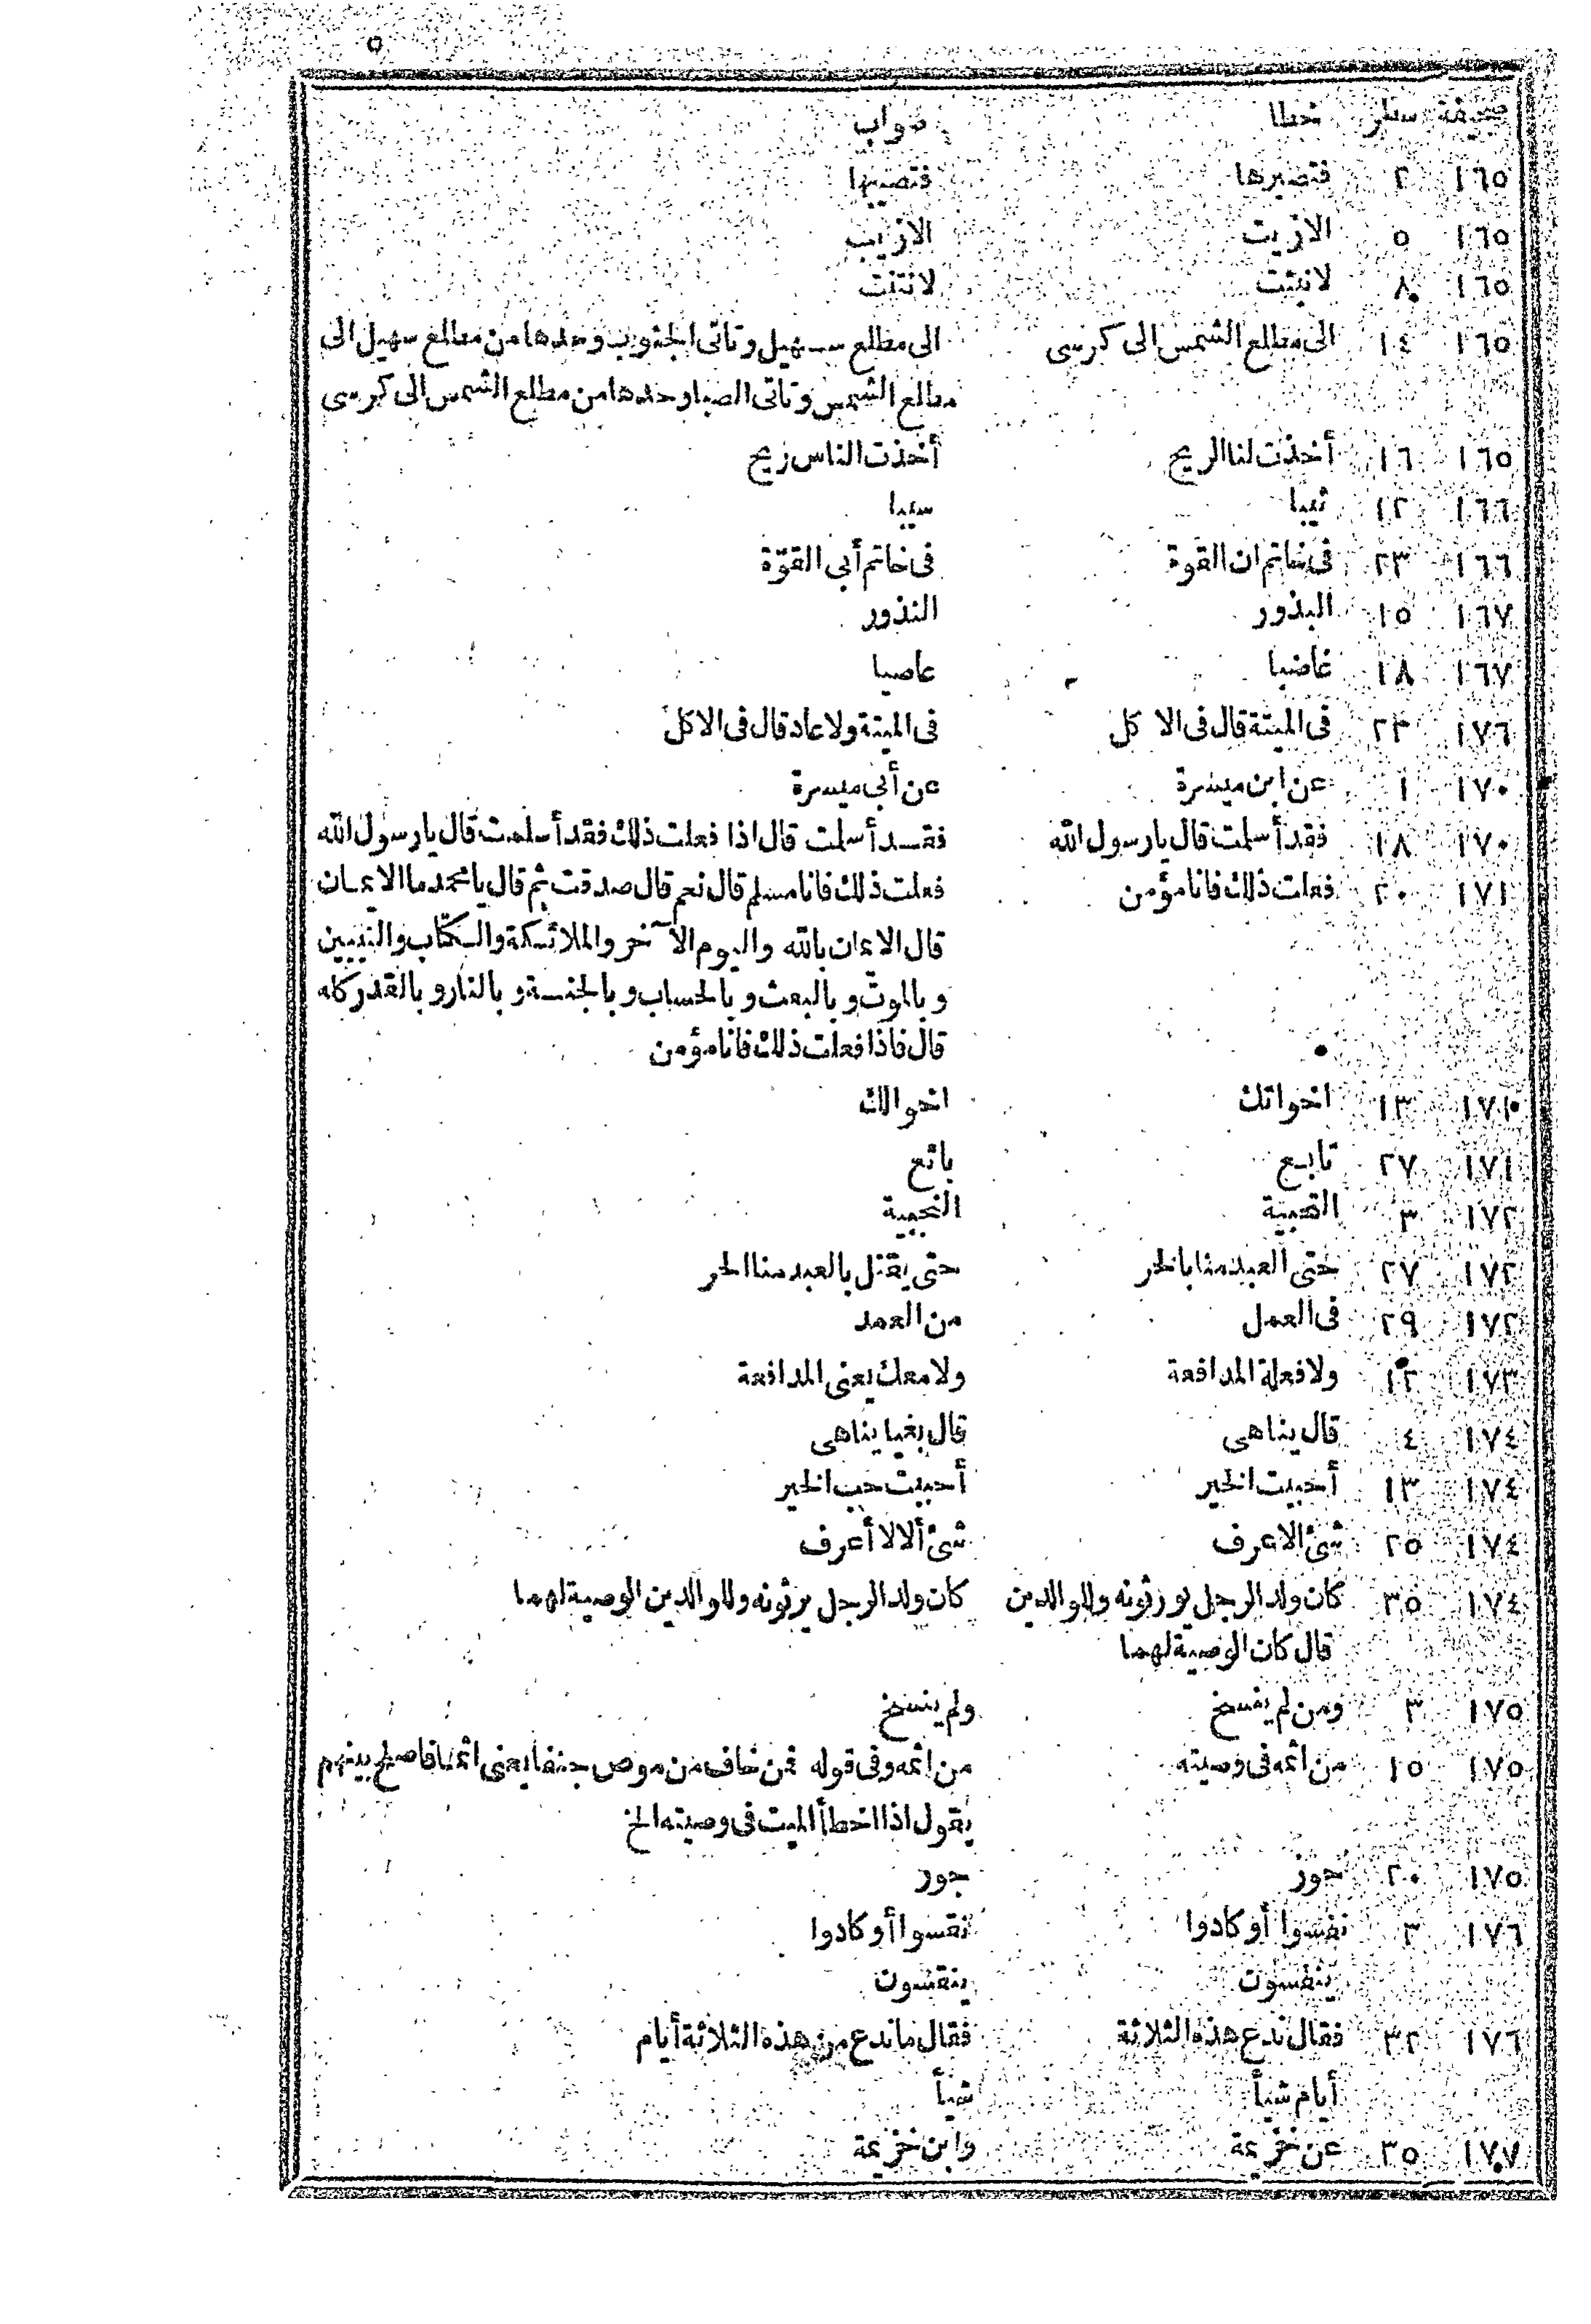 ٥
صحيفة سطر خطا صواب
١٦٥ ٢ فتصيرها فتصيبها
١٦٥ ٥ الازيت الازيب
١٦٥ ٨ لانبثت لانتنت
١٦٥ ١٤ الى مطلع الشمس الى كرسى الى مطلع سهيل وتاتى الجنوب وحدها من مطلع سهيل الى
مطلع الشمس وتاتى الصبا وحدها من مطلع الشمس الى كرسى
١٦٥ ١٦ أخذت لنا الريح أخذت الناس ريح
١٦٦ ١٢ ثيبا سيبا
١٦٦ ٢٣ فى خاتم ان القوة فى خاتم أبى القوّة
١٦٧ ١٥ البذور النذور
١٦٧ ١٨ غاضبا عاصيا
١٧٦ ٢٣ فى الميتة قال فى الاكل فى الميتة ولا عاد قال فى الاكل
١٧٠ ١ عن ابن ميسرة عن أبى ميسرة
١٧٠ ١٨ فقد أسلمت قال يارسول الله فقد أسلمت قال اذا فعلت ذلك فقد أسلمت قال يارسول الله
١٧١ ٢٠ فعلت ذلك فانا مؤمن فعلت ذلك فانا مسلم قال نعم قال صدقت ثم قال يا محمد ما الايمان
قال الايمان بالله واليوم الآخر والملائكة والكتاب والنبيين
وبالموت وبالبعث وبالحساب وبالجنة وبالنار وبالقدر كله
قال فاذا فعلت ذلك فانا مؤمن
١٧١ ١٣ اخواتك اخوالك
١٧١ ٢٧ تابع بائع
١٧٢ ٣ النجيبة
١٧٢ ٢٧ حتى العبد منا بالحر حتى يقتل بالعبد منا الحر
١٧٢ ٢٩ فى العمل من العمد
١٧٣ ١٢ ولا فعلة المدافعة ولا معك يعنى المدافعة
١٧٤ ٤ قال يناهى قال بغيا يناهى
١٧٤ ١٣ أحببت الخير أحببت حب الخير
١٧٤ ٢٥ شئ الا عرف شئ ألا لا أعرف
١٧٤ ٣٥ كان ولد الرجل يورثونه وللوالدين كان ولد الرجل يرثونه وللوالدين الوصية لهما
قال كان الوصية لهما
١٧٥ ٣ ومن لم يفسخ ولم ينسخ
١٧٥ ١٥ من اثمه فى وصيته من اثمه وفى قوله فمن خاف من موص جنفا يعنى اثما فاصلح بينهم
يقول اذا اخطأ الميت فى وصيته الخ
١٧٥ ٢٠ حوز جور
١٧٦ ٣ نفسوا أو كادوا نقسوا أو كادوا
ينفسون ينقسون
١٧٦ ٣٢ فقال ندع هذه الثلاثة فقال ما ندع من هذه الثلاثة أيام
أيام شيأ شيأ
١٧٧ ٣٥ عن خزيمة وابن خزيمة